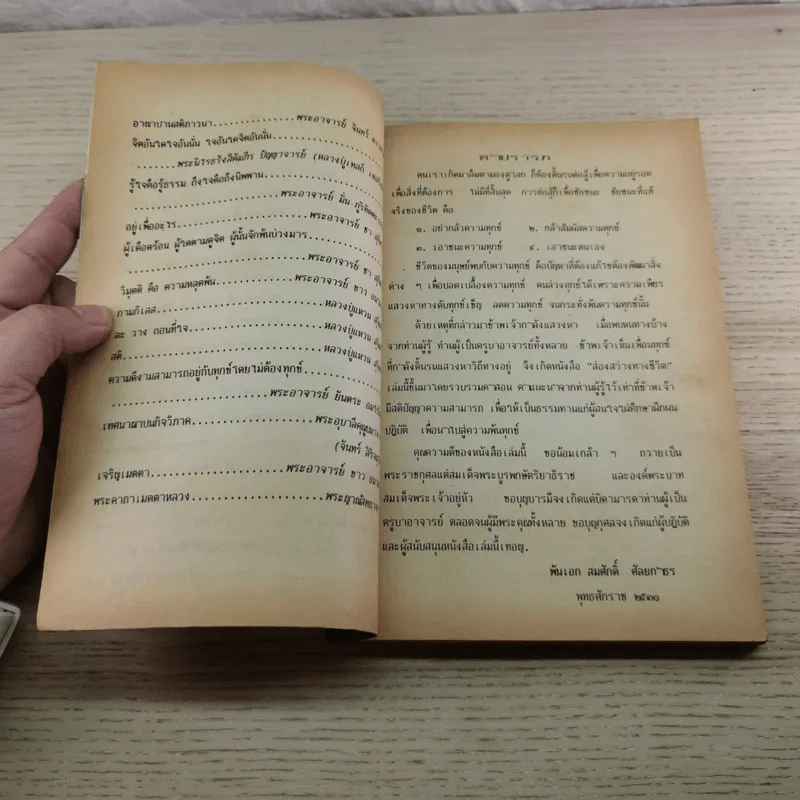 อาณาปานสติภาวนา................พระอาจารย์ จันทร์
จิตอันใดใจอันนั่น ใจอันใดจิตอันนั่น
......พระนิโรธรังสีคัมภีร ปัญญาจารย์ (หลวงปู่เทสก์
รู้ใจคือรู้ธรรม ถึงใจคือถึงนิพพาน
......................พระอาจารย์ มั่น ภูริทัตต
อยู่เพื่ออะไร......................พระอาจารย์ ชา
ผู้เดือดร้อน ผู้ใดตามดูจิต ผู้นั้นจักพ้นบ่วงมาร
......................พระอาจารย์ ชา
วิมุตติ คือ ความหลุดพ้น................พระอาจารย์ ขาว
กามกิเลส......................หลวงปู่แหวน
ละ วาง ถอนที่ใจ......................หลวงปู่แหวน
สติ......................หลวงปู่แหวน
ความดีงามสามารถอยู่กับทุกข์โดยไม่ต้องทุกข์
......................พระอาจารย์ ยันตระ
เทศนาญาปนกิจวิภาค................พระอุบาลีคุณูปมา
(จันทร์ สิริจน
เจริญเมตตา......................พระอาจารย์ ขาว
พระคาถาเมตตาหลวง......................พระญาณสิทธา
คำปรารภ
คนเราเกิดมาลืมตามองดูโลก ก็ต้องดิ้นรนต่อสู้เพื่อความอยู่รอด
เพื่อสิ่งที่ต้องการ ไม่มีที่สิ้นสุด การต่อสู้ก็เพื่อชัยชนะ ชัยชนะที่แท้
จริงของชีวิต คือ
๑. อย่ากลัวความทุกข์ ๒. กล้าสัมผัสความทุกข์
๓. เอาชนะความทุกข์ ๔. เอาชนะตนเอง
ชีวิตของมนุษย์พบกับความทุกข์ คือปัญหาที่ต้องแก้ไขต้องพัฒนาสิ่ง
ต่าง ๆ เพื่อปลดเปลื้องความทุกข์ คนล่วงทุกข์ได้เพราะความเพียร
แสวงหาทางดับทุกข์เข็ญ ลดความทุกข์ จนกระทั่งพ้นความทุกข์นั้น
ด้วยเหตุที่กล่าวมาข้าพเจ้ากำลังแสวงหา เมื่อพบหนทางบ้าง
จากท่านผู้รู้ ท่านผู้เป็นครูบาอาจารย์ทั้งหลาย ข้าพเจ้าเห็นเพื่อนทุกข์
ที่กำลังดิ้นรนแสวงหาวิถีทางอยู่ จึงเกิดหนังสือ "ส่องสว่างทางชีวิต"
เล่มนี้ขึ้นมาโดยรวบรวมคำสอน คำแนะนำจากท่านผู้รู้ไว้เท่าที่ข้าพเจ้า
มีสติปัญญาความสามารถ เพื่อให้เป็นธรรมทานแก่ผู้สนใจใฝ่ศึกษาฝึกฝน
ปฏิบัติ เพื่อนำไปสู่ความพ้นทุกข์
คุณความดีของหนังสือเล่มนี้ ขอน้อมเกล้า ฯ ถวายเป็น
พระราชกุศลแด่สมเด็จพระบูรพกษัตริยาธิราช และองค์พระบาท
สมเด็จพระเจ้าอยู่หัว ขอบุญบารมีจงเกิดแด่บิดามารดาท่านผู้เป็น
ครูบาอาจารย์ ตลอดจนผู้มีพระคุณทั้งหลาย ขอบุญกุศลจงเกิดแก่ผู้ปฏิบัติ
และผู้สนับสนุนหนังสือเล่มนี้เทอญ.
พันเอก สมศักดิ์ ศัลยกำธร
พุทธศักราช ๒๕๓๑